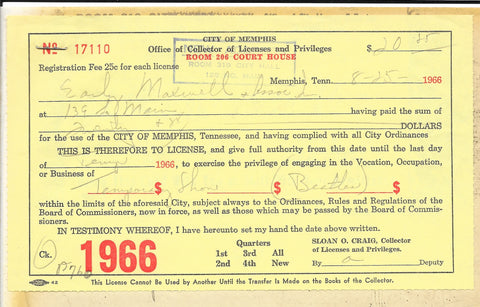 CITY OF MEMPHIS
№ 17110 Office of Collector of Licenses and Privileges $ 20 25
ROOM 206 COURT HOUSE
Registration Fee 25c for each license
ROOM 210 CITY HALL
Memphis, Tenn. 8-25- 1966
Early Maxwell & Assoc
at 139 So Main having paid the sum of
DOLLARS
for the use of the CITY OF MEMPHIS, Tennessee, and having complied with all City Ordinances
THIS IS THEREFORE TO LICENSE, and give full authority from this date until the last day
of 1966, to exercise the privilege of engaging in the Vocation, Occupation,
or Business of
Temporary $ Show (Beatles) $ $
within the limits of the aforesaid City, subject always to the Ordinances, Rules and Regulations of the
Board of Commissioners, now in force, as well as those which may be passed by the Board of Commis-
sioners.
IN TESTIMONY WHEREOF, I have hereunto set my hand the date above written.
Ck. 1966
Quarters
1st 3rd All
2nd 4th New
SLOAN O. CRAIG, Collector
of Licenses and Privileges.
By
This License Cannot Be Used by Another Until the Transfer Is Made on the Books of the Collector.